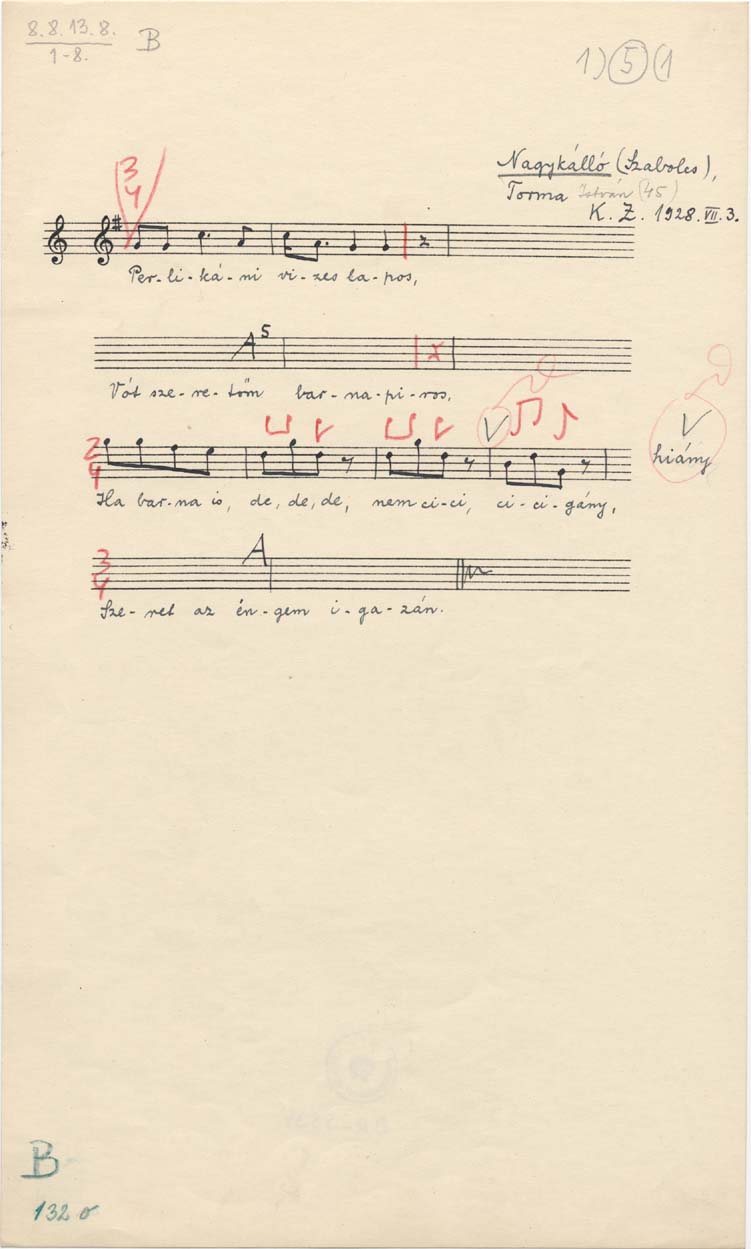 8. 8. 13. 8.
1-8.
B
1) 5 (1
Nagykálló (Szabolcs),
Torma István (45)
K. Z. 1928. VII. 3.
3
4
Per-li-ká-ni vi-zes la-pos,
A5
Vót sze-re-tőm bar-na-pi-ros,
V
V
2
4
hiány
Ha bar-na is, de, de, de, nem ci-ci, ci-ci-gány,
A
3
4
Sze-ret az én-gem i-ga-zán.
B
132 σ